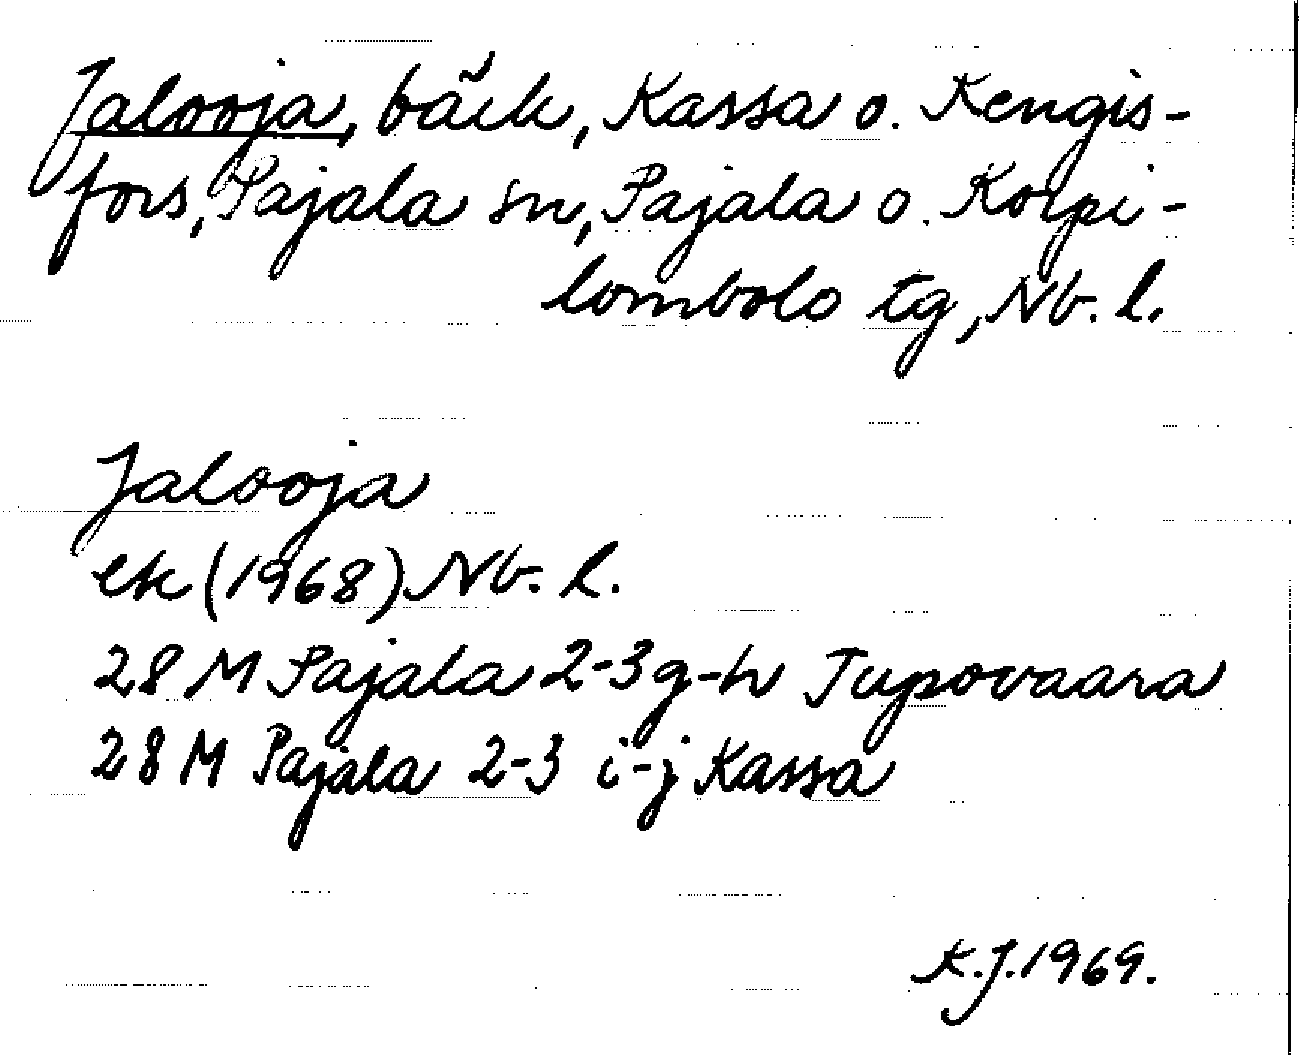 Jalooja, bäck, Kassa o. Kengis-
fors, Pajala sn, Pajala o. Korpi-
lombolo tg, Nb. l.
Jalooja
ek (1968) Nb. l.
28 M Pajala 2-3 g-h Jupovaara
28 M Pajala 2-3 i-j Kassa
K.J. 1969.